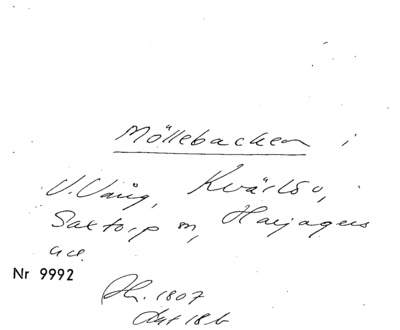 Möllebacken i
V. Vång, Kvärlöv,
Saxtorp sn, Harjagers
Nr 9992
1807